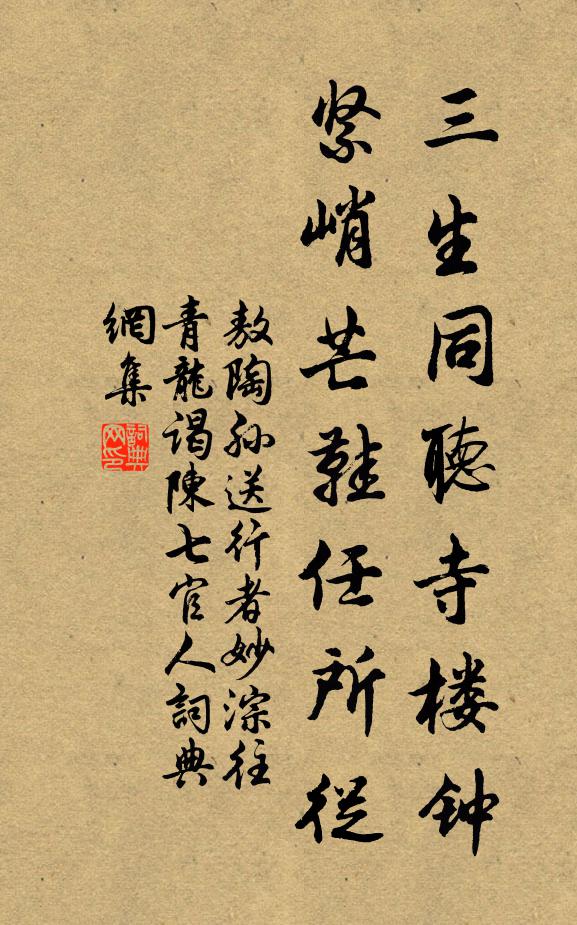 三生同聽寺楼钟
紧峭芒鞋任所從
敖陶孙送行者妙淙往
青龍谒陳七官人詞典
網集
詞典网印